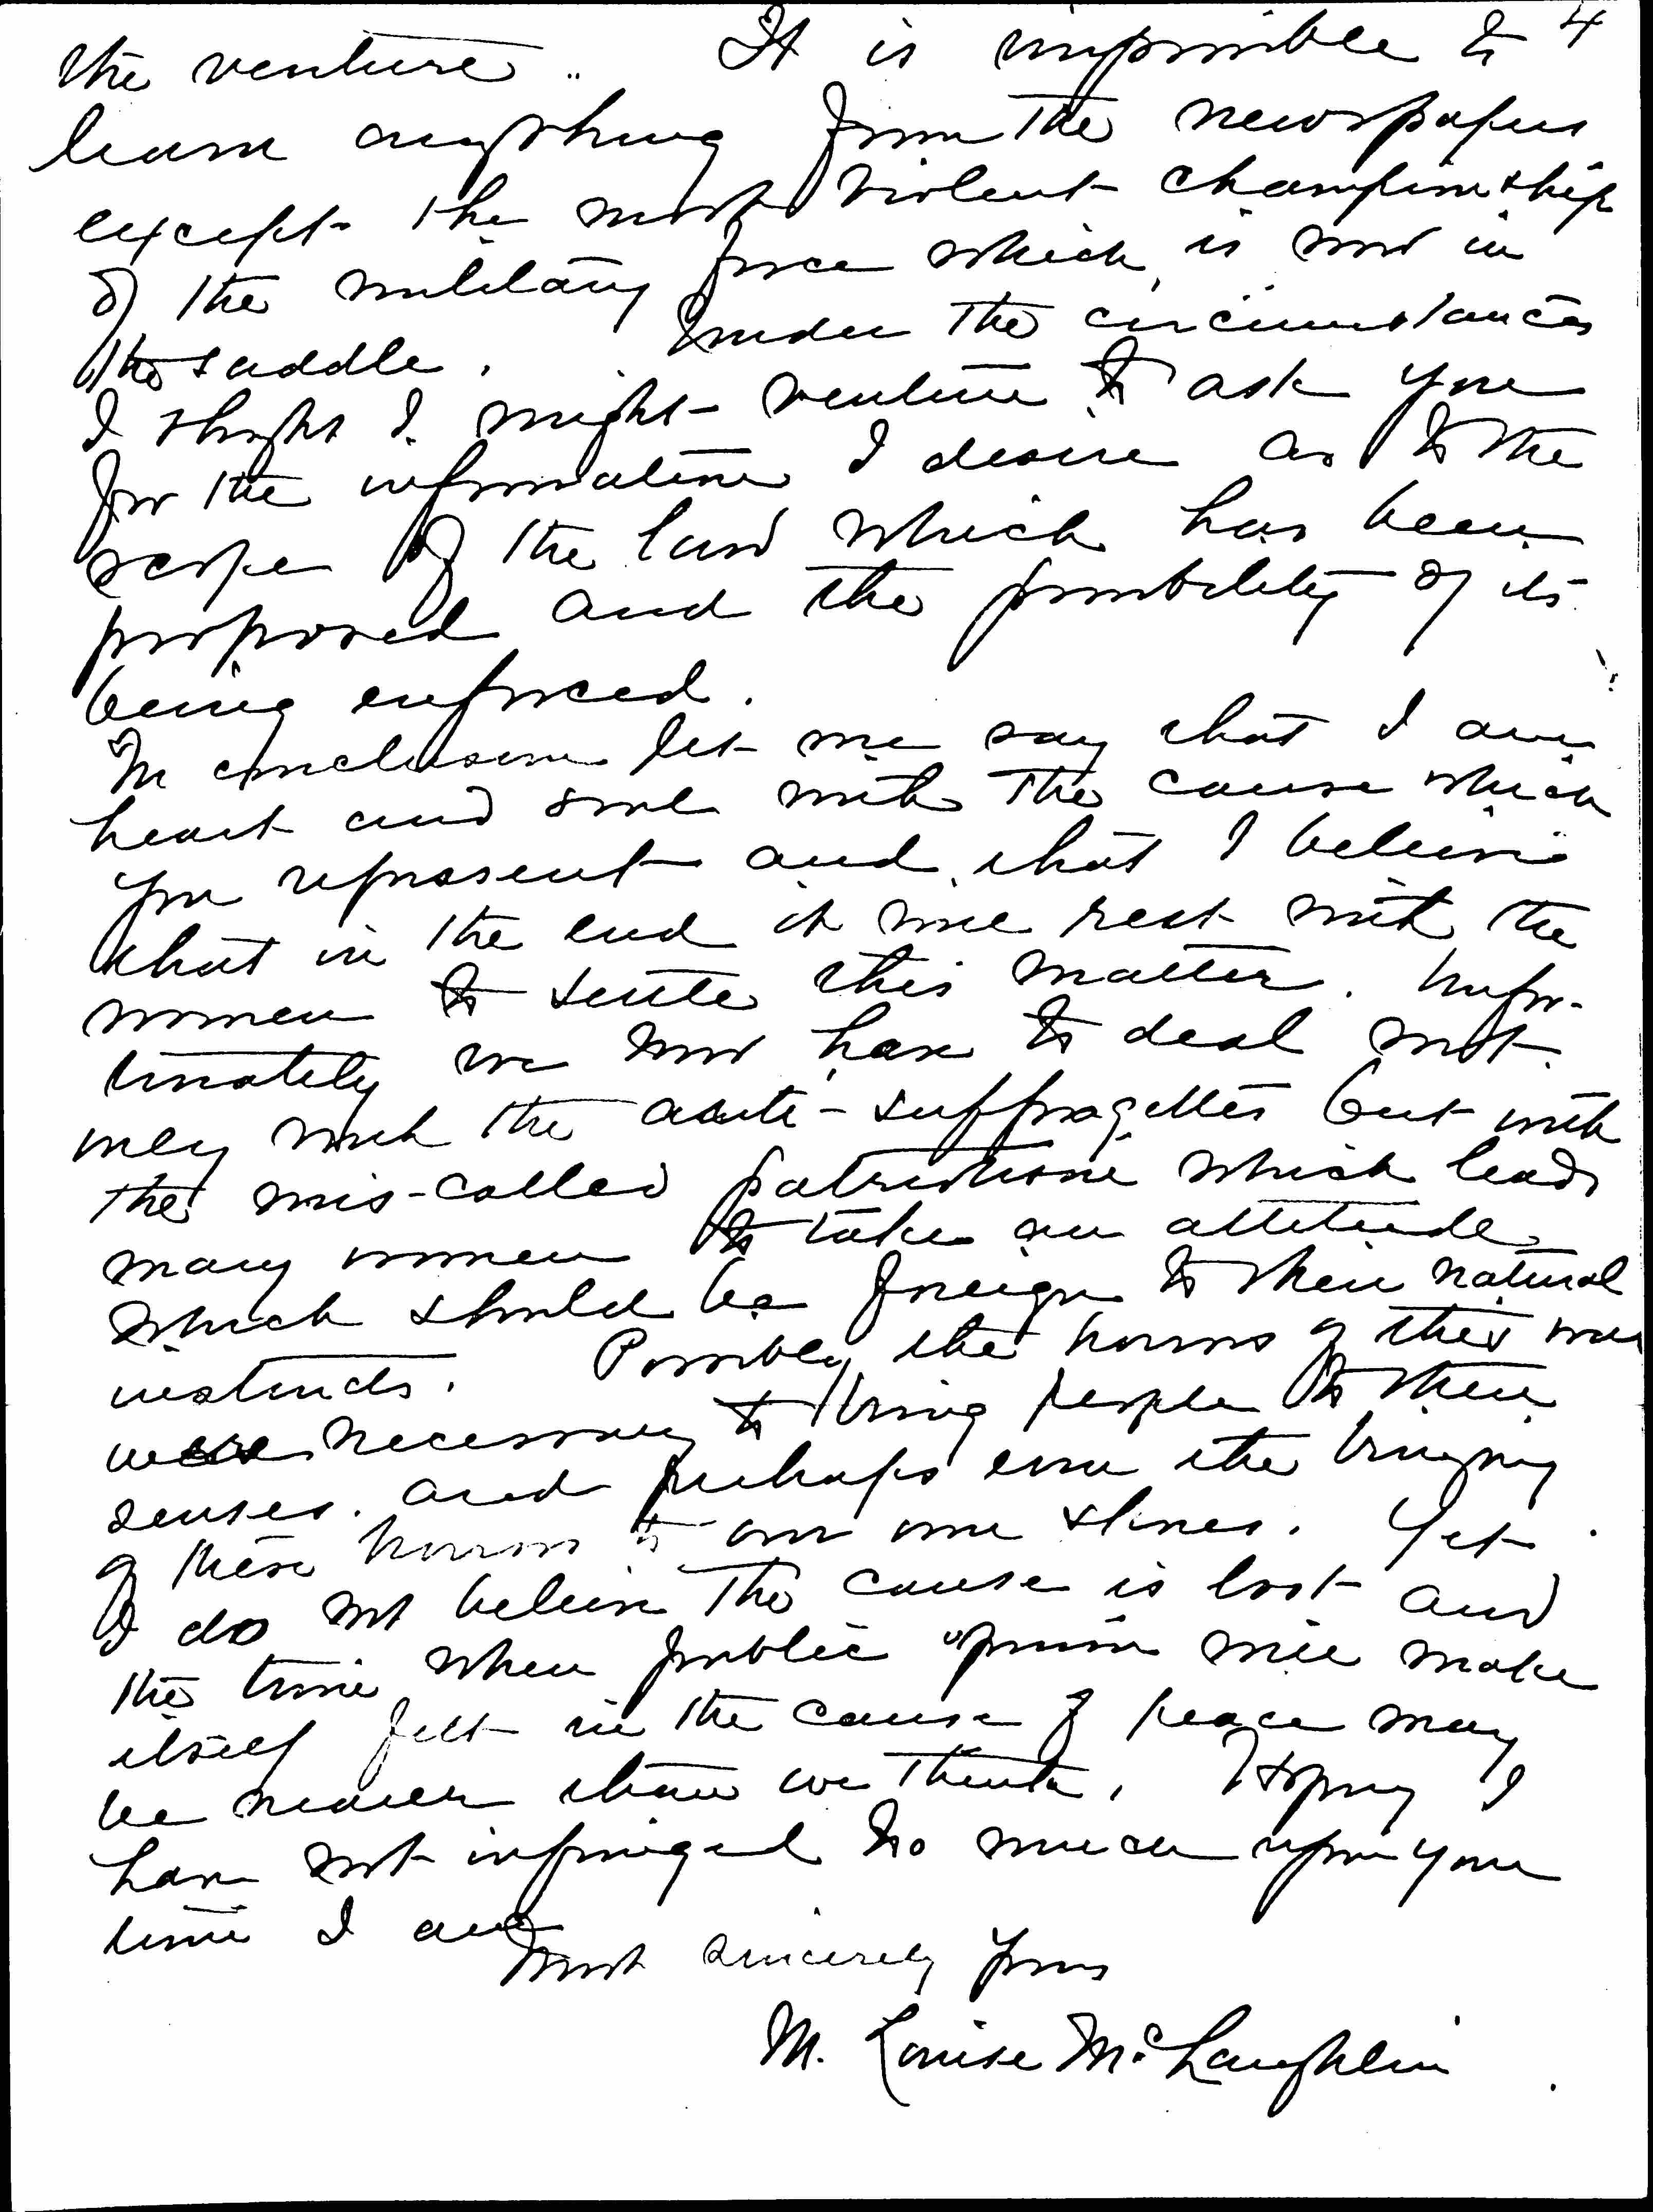 4
the venture. It is impossible to
learn anything from the newspapers
except the most violent championship
of the military force which is now in
the saddle. Under the circumstances
I thought I might venture to ask you
for the information I desire as to the
scope of the law which has been
proposed and the possibility of its
being enforced.
In conclusion let me say that I am
heart and soul with the cause which
you represent and that I believe
that in the end it will rest with the
women to settle this matter. Unfor-
tunately we now have to deal not
only with the anti-suffragettes but with
the mis-called patriotism which leads
many women to take an attitude
which should be foreign to their natural
instincts. Possibly the horrors of this war
were necessary to bring people to their
senses. and perhaps even the bringing
of these horrors to our own shores. Yet
I do not believe the cause is lost and
the time when public opinion will make
itself felt in the cause of peace may
be nearer than we think. Hoping I
have not infringed to much upon your
time I am
Most sincerely yours
M. Louise McLaughlin